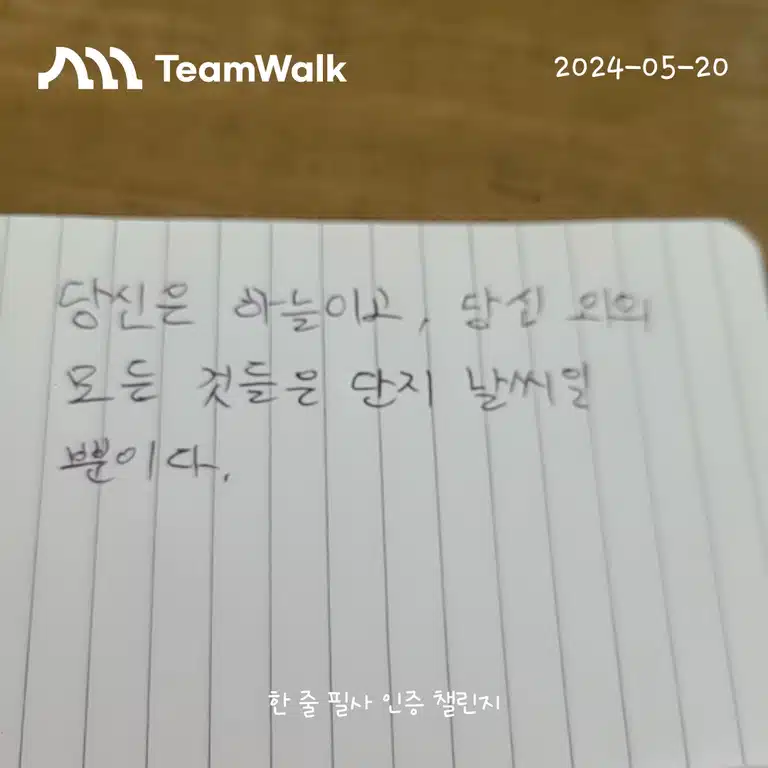 TeamWalk
2024-05-20
당신은 하늘이고, 당신 외의
모든 것들은 단지 날씨일
뿐이다.
한 줄 필사 인증 챌린지